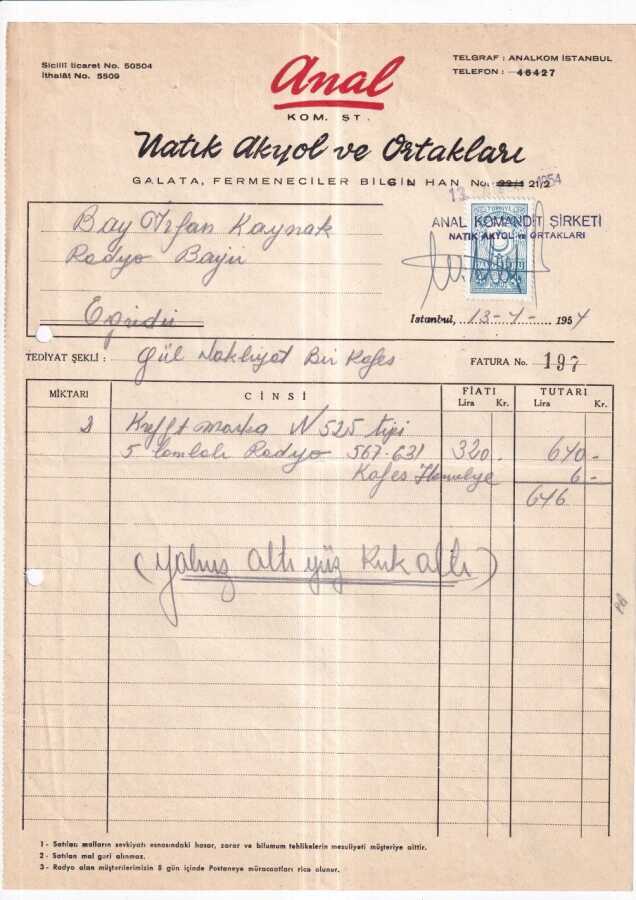 Sicilli ticaret No. 50504
İthalât No. 5509
TELGRAF : ANALKOM İSTANBUL
TELEFON : 46427
Anal
KOM. ŞT.
Natık Akyol ve Ortakları
GALATA, FERMENECİLER BİLGİN HAN No. 22/1 21/2
13 1954
Bay İrfan Kaynak
Radyo Bayii
Eğridir
TÜRKİYE
ANAL KOMANDİT ŞİRKETİ
NATIK AKYOL ve ORTAKLARI
Istanbul, 13-4- 1954
TEDİYAT ŞEKLİ : Gül Nakliyat Bir Kafes
FATURA No. 197
MİKTARI CİNSİ FİATI Lira Kr. TUTARI Lira Kr.
2 Krefft marka N 525 tipi
5 lambalı Radyo 567-631 320.- 640-
Kafes Hamuliye 6-
646
(Yalnız altı yüz Kırk altı)
1 - Satılan malların sevkiyatı esnasındaki hasar, zarar ve bilumum tehlikelerin mesuliyeti müşteriye aittir.
2 - Satılan mal geri alınmaz.
3 - Radyo alan müşterilerimizin 8 gün içinde Postaneye müracaatları rica olunur.